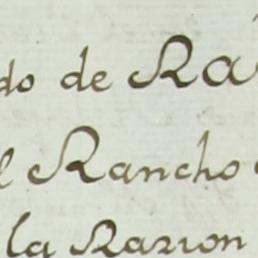 do de Rá
l Rancho
la Razion